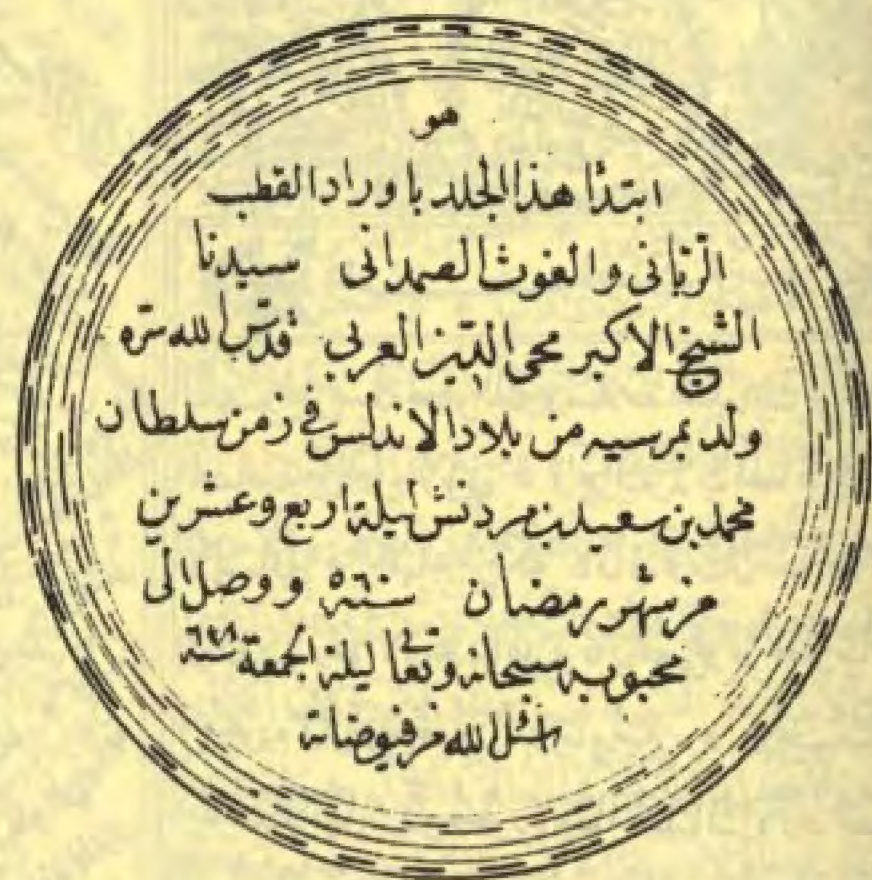 هو
ابتدأ هذا المجلد باوراد القطب
الرباني والغوث الصمداني سيدنا
الشيخ الاكبر محي الدين العربي قدس الله سره
ولد بمرسيه من بلاد الاندلس في زمن سلطان
محمد بن سعيد بن مردنش ليلة اربع وعشرين
من شهر رمضان سنة ٥٦٠ ووصل الى
محبوبه سبحانه وتعالى ليلة الجمعة سنة ٦٣٨
الله من فيوضاته